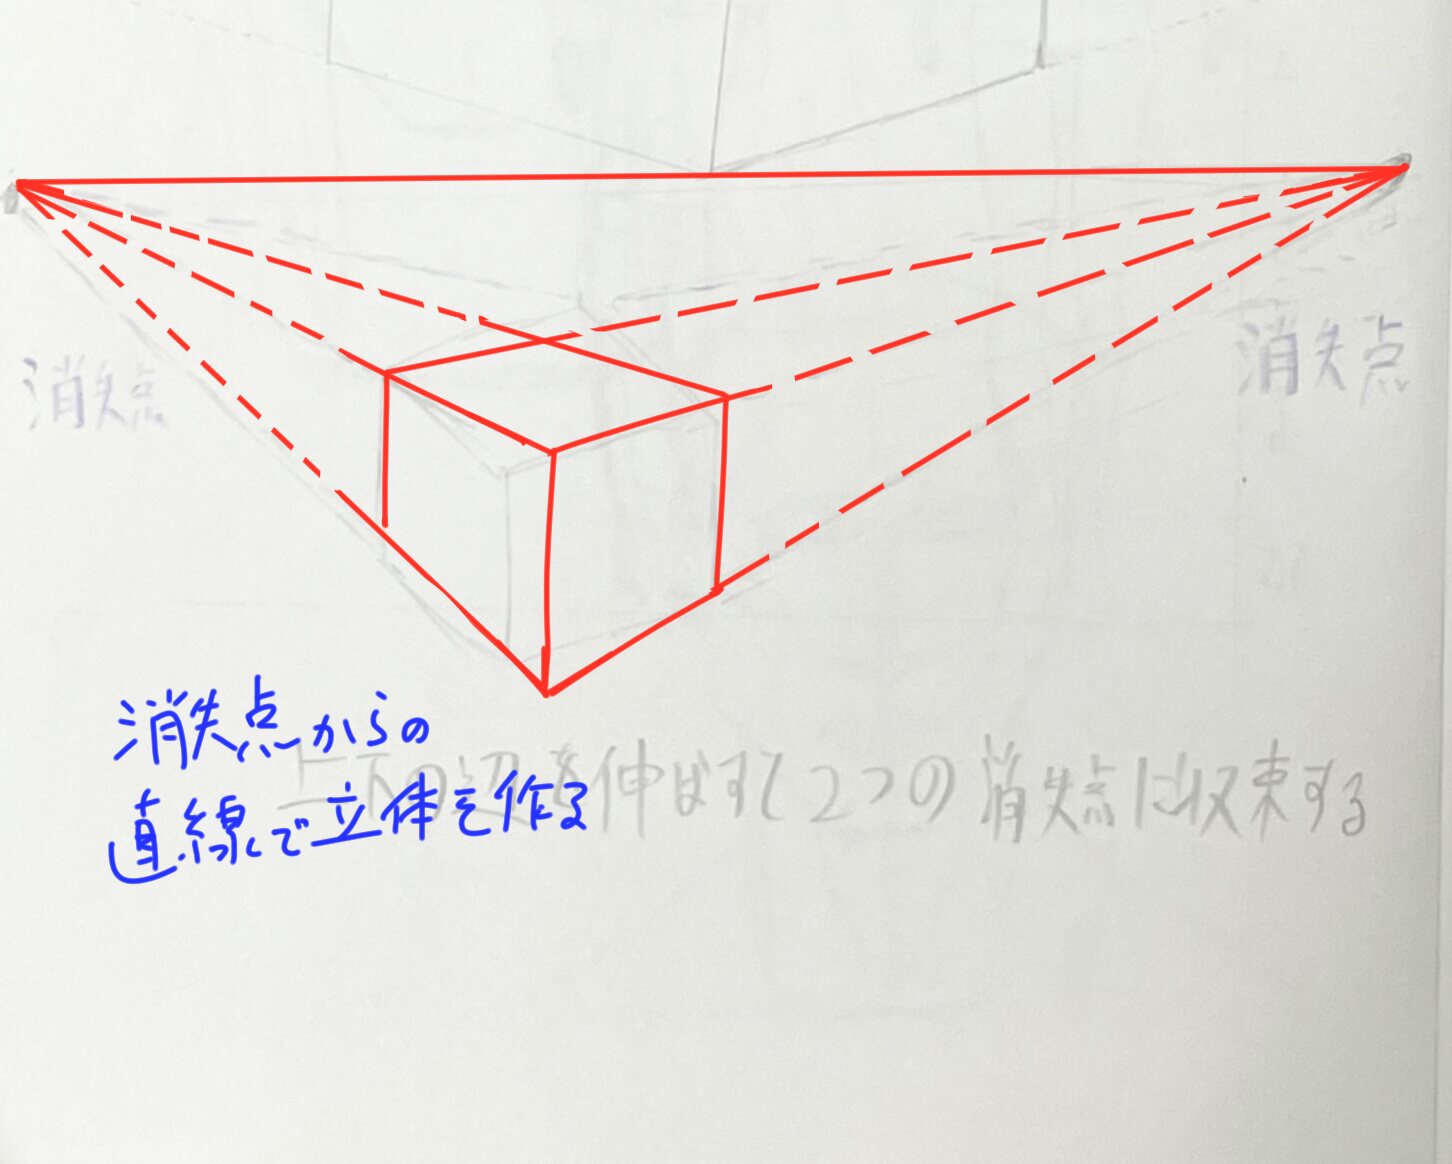 消失点
消失点
消失点からの
直線で立体を作る
上下の辺を伸ばすして2つの消失点に収束する